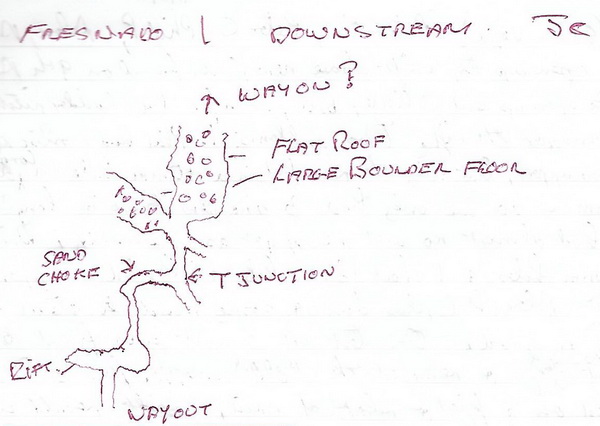 FRESNADO 1 DOWNSTREAM. JC
WAY ON?
FLAT ROOF
LARGE BOULDER FLOOR
SAND
CHOKE
T JUNCTION
RIFT.
WAYOUT